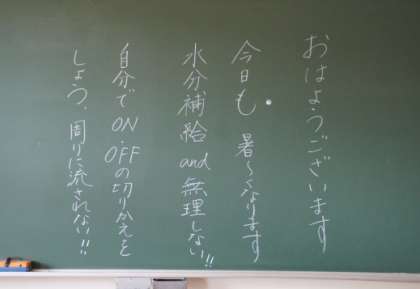 おはようございます
今日も暑くなります
水分補給and無理しない!!
自分でON・OFFの切りかえを
しよう、周りに流されない!!